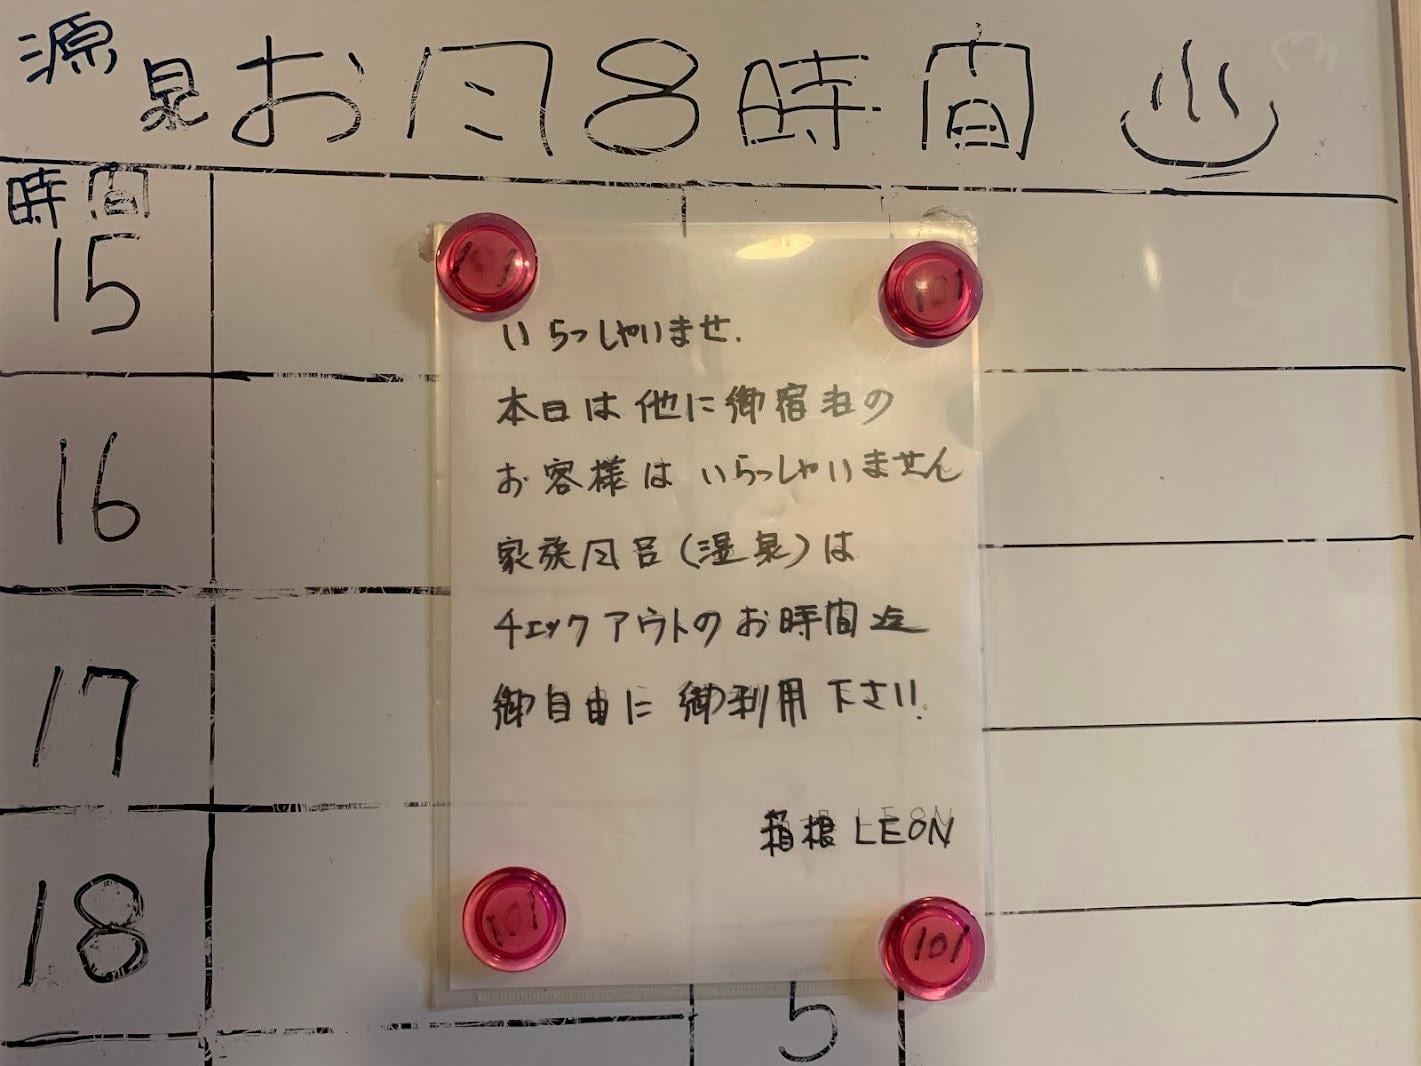 源泉お风8時間
時間
15
16
17
18
5
101
101
101
101
いらっしゃいませ.
本日は他に御宿泊の
お客様はいらっしゃいません
家族风呂(湿泉)は
チェックアウトのお時間迄
御自由に御利用下さい!
箱根 LEON